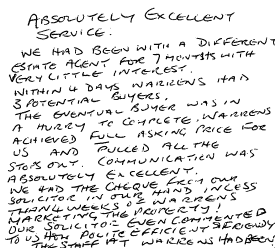 ABSOLUTELY EXCELLENT
SERVICE.
WE HAD BEEN WITH A DIFFERENT
ESTATE AGENT FOR 7 MONTHS WITH
VERY LITTLE INTEREST.
WITHIN 4 DAYS WARRENS HAD
3 POTENTIAL BUYERS.
THE EVENTUAL BUYER WAS IN
A HURRY TO COMPLETE, WARRENS
ACHIEVED FULL ASKING PRICE FOR
US AND PULLED ALL THE
STOPS OUT. COMMUNICATION WAS
ABSOLUTELY EXCELLENT.
WE HAD THE CHEQUE FROM OUR
SOLICITOR IN OUR HAND IN LESS
THAN WEEKS OF WARRENS
MARKETING THE PROPERTY!
OUR SOLICITOR EVEN COMMENTED
TO US POLITE EFFICIENT &
THE STAFF AT WARRENS HAD BEEN